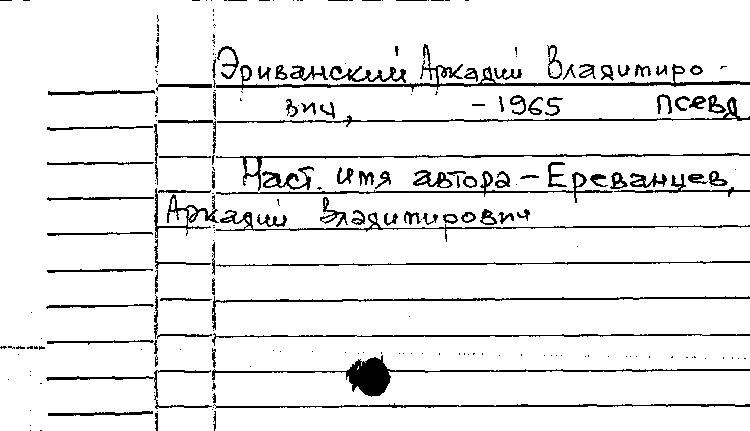 Эриванский, Аркадий Владимиро-
вич, -1965 псевд
Наст. имя автора - Ереванцев,
Аркадий Владимирович